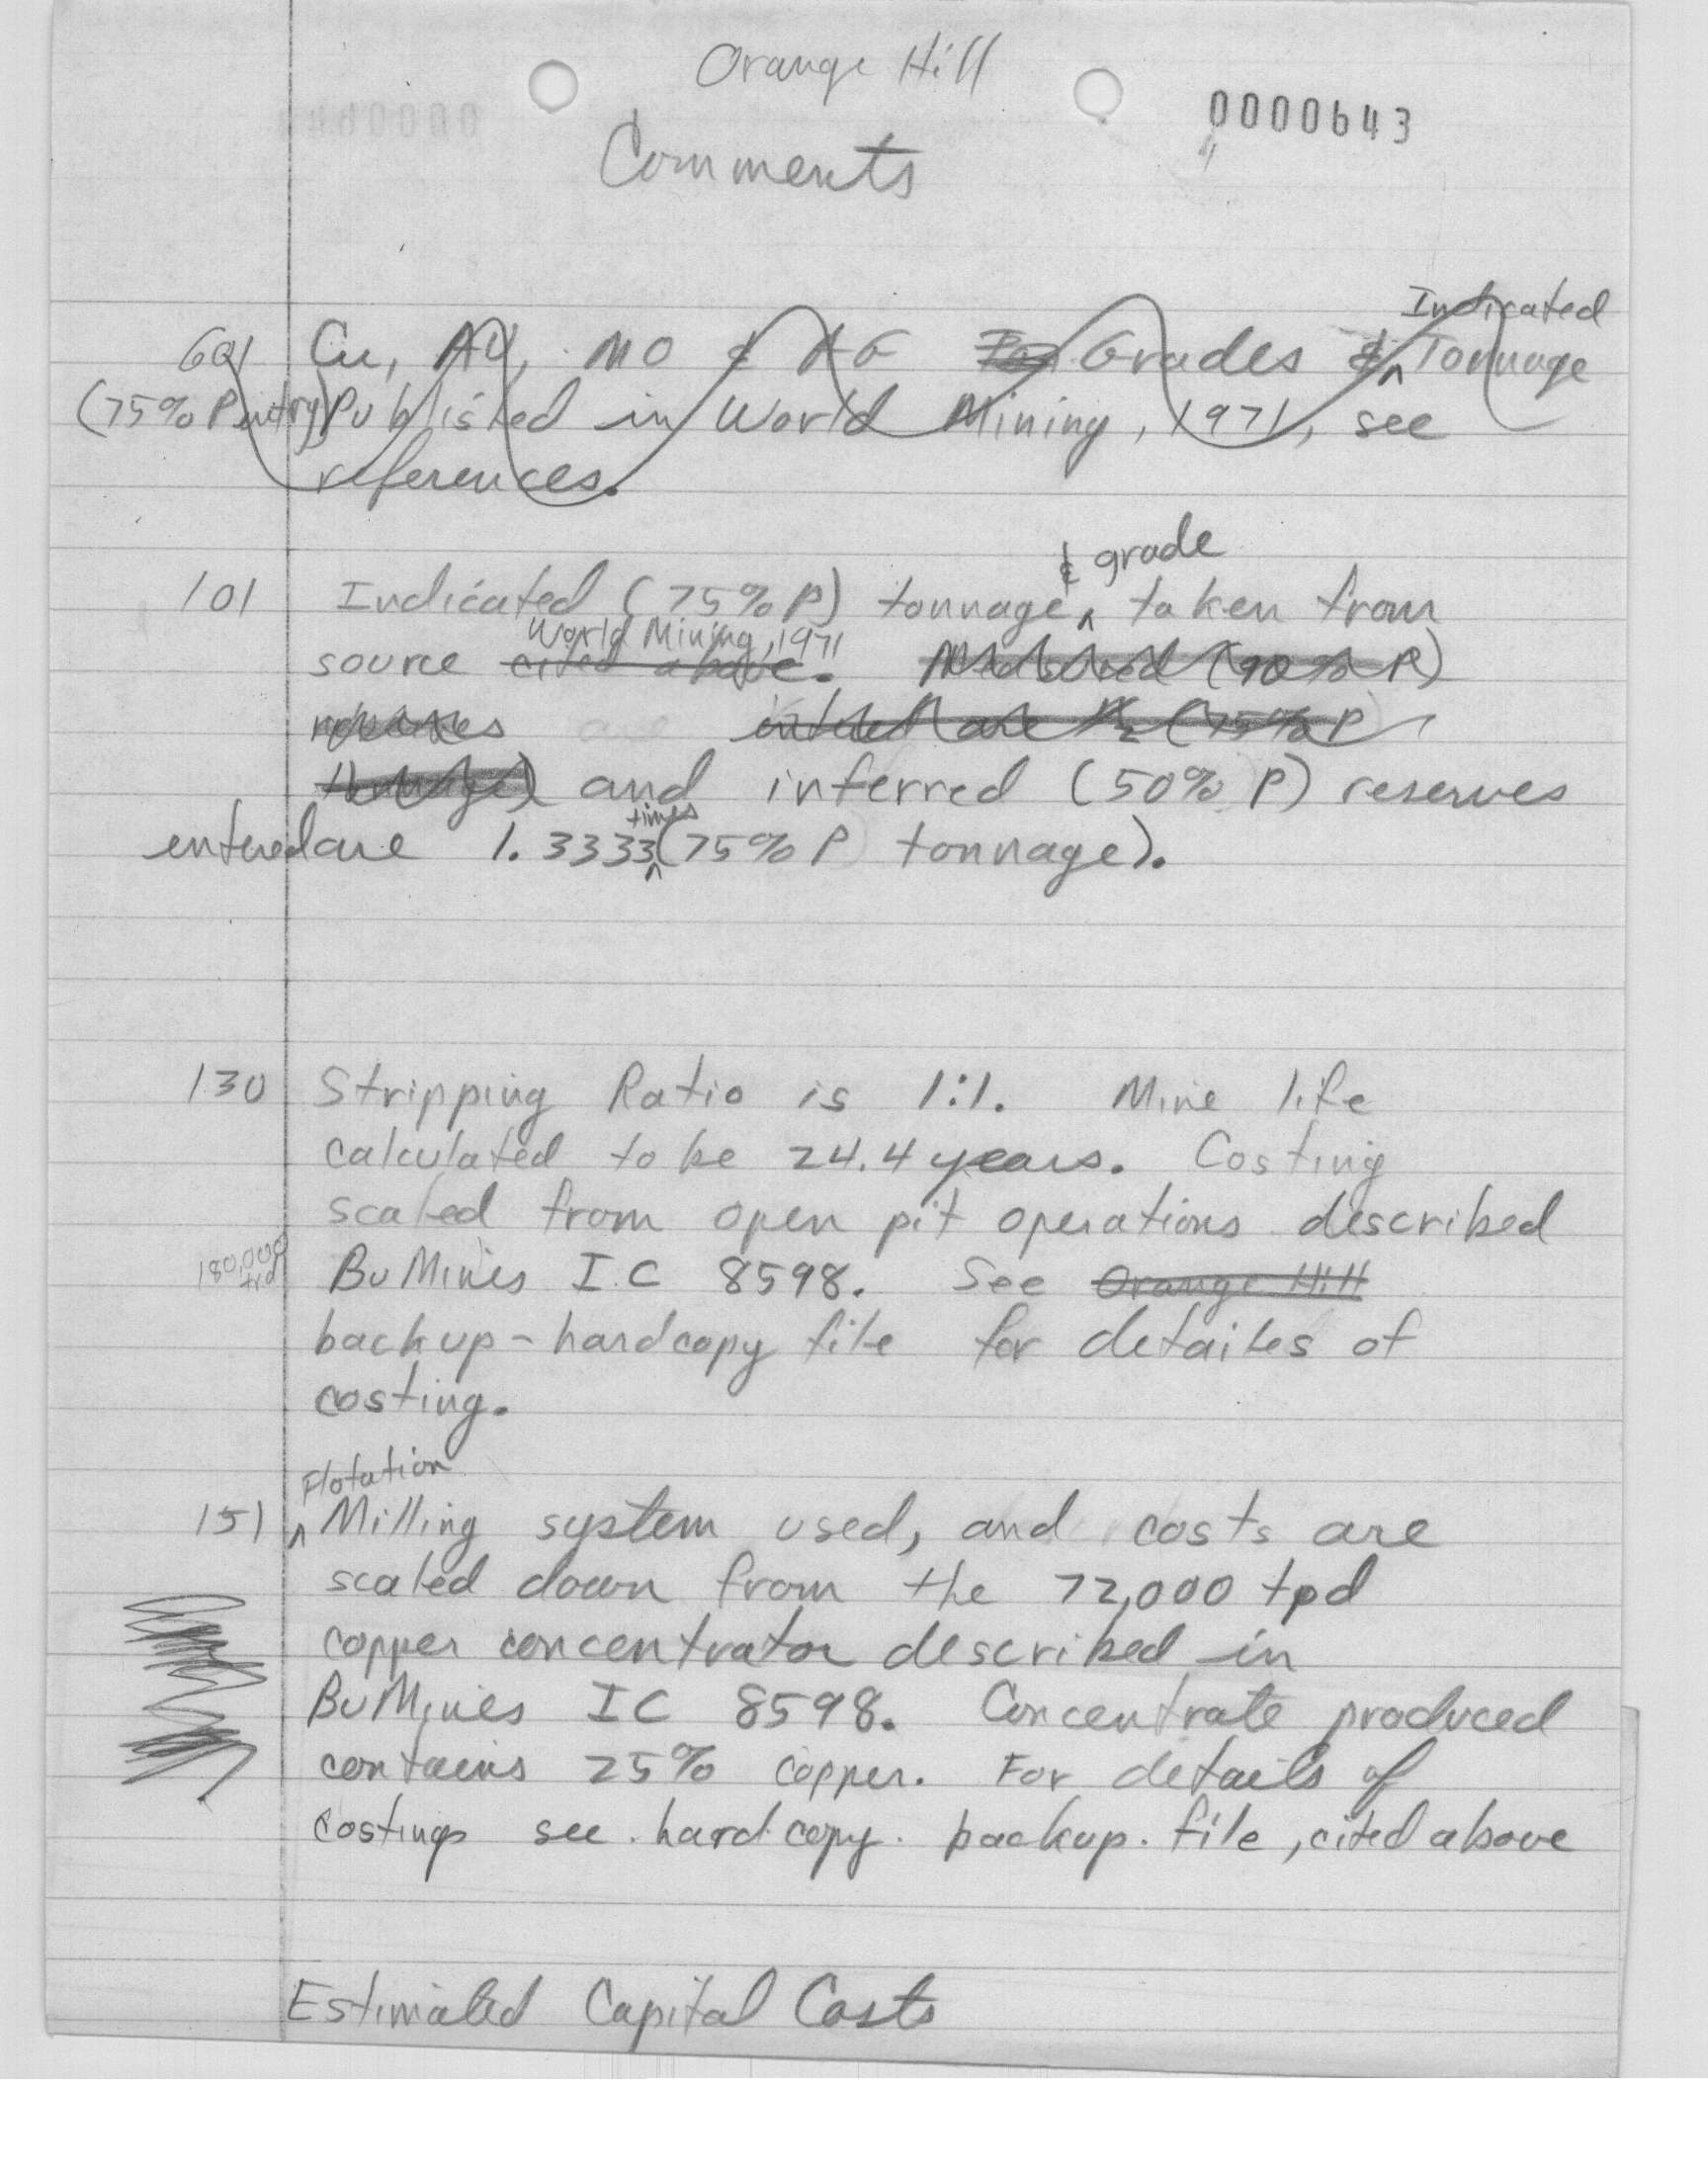 Orange Hill
0000643
Comments
Indicated
601 Cu, AU, MO & AG Grades & Tonnage
(75% P entry) Published in World Mining, 1971, see
references.
& grade
101 Indicated (75% P) tonnage ^ taken from
World Mining, 1971
source cited above. Measured (90% P)
reserves entered are 1/2 (75% P
tonnage) and inferred (50% P) reserves
times
entered are 1.3333 ^ (75% P tonnage).
130 Stripping Ratio is 1:1. Mine life
calculated to be 24.4 years. Costing
scaled from open pit operations described
180,000 tpd
BuMines I.C 8598. See Orange Hill
backup-hardcopy file for detailes of
costing.
Flotation
151 ^ Milling system used, and costs are
scaled down from the 72,000 tpd
copper concentrator described in
BuMines IC 8598. Concentrate produced
contains 25% copper. For details of
costings see hard copy backup file, cited above
Estimated Capital Costs